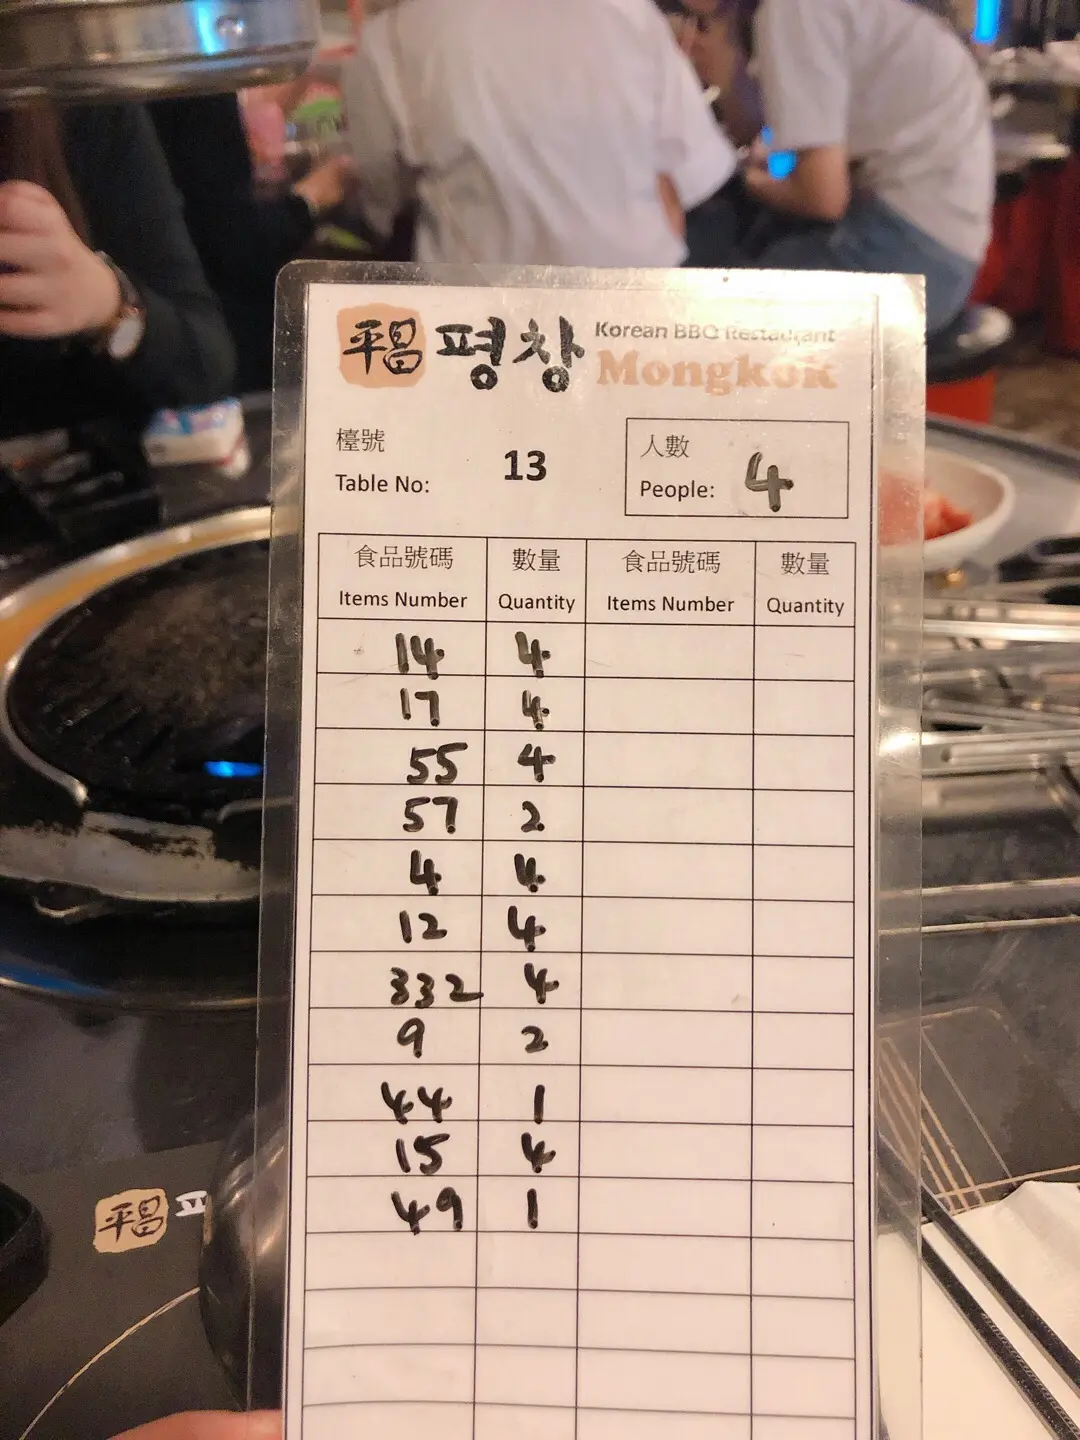 平昌 평창 Korean BBQ Restaurant
Mongkok
檯號
Table No: 13
人數
People: 4
食品號碼 數量 食品號碼 數量
Items Number Quantity Items Number Quantity
14 4
17 4
55 4
57 2
4 4
12 4
332 4
9 2
44 1
15 4
49 1
平昌